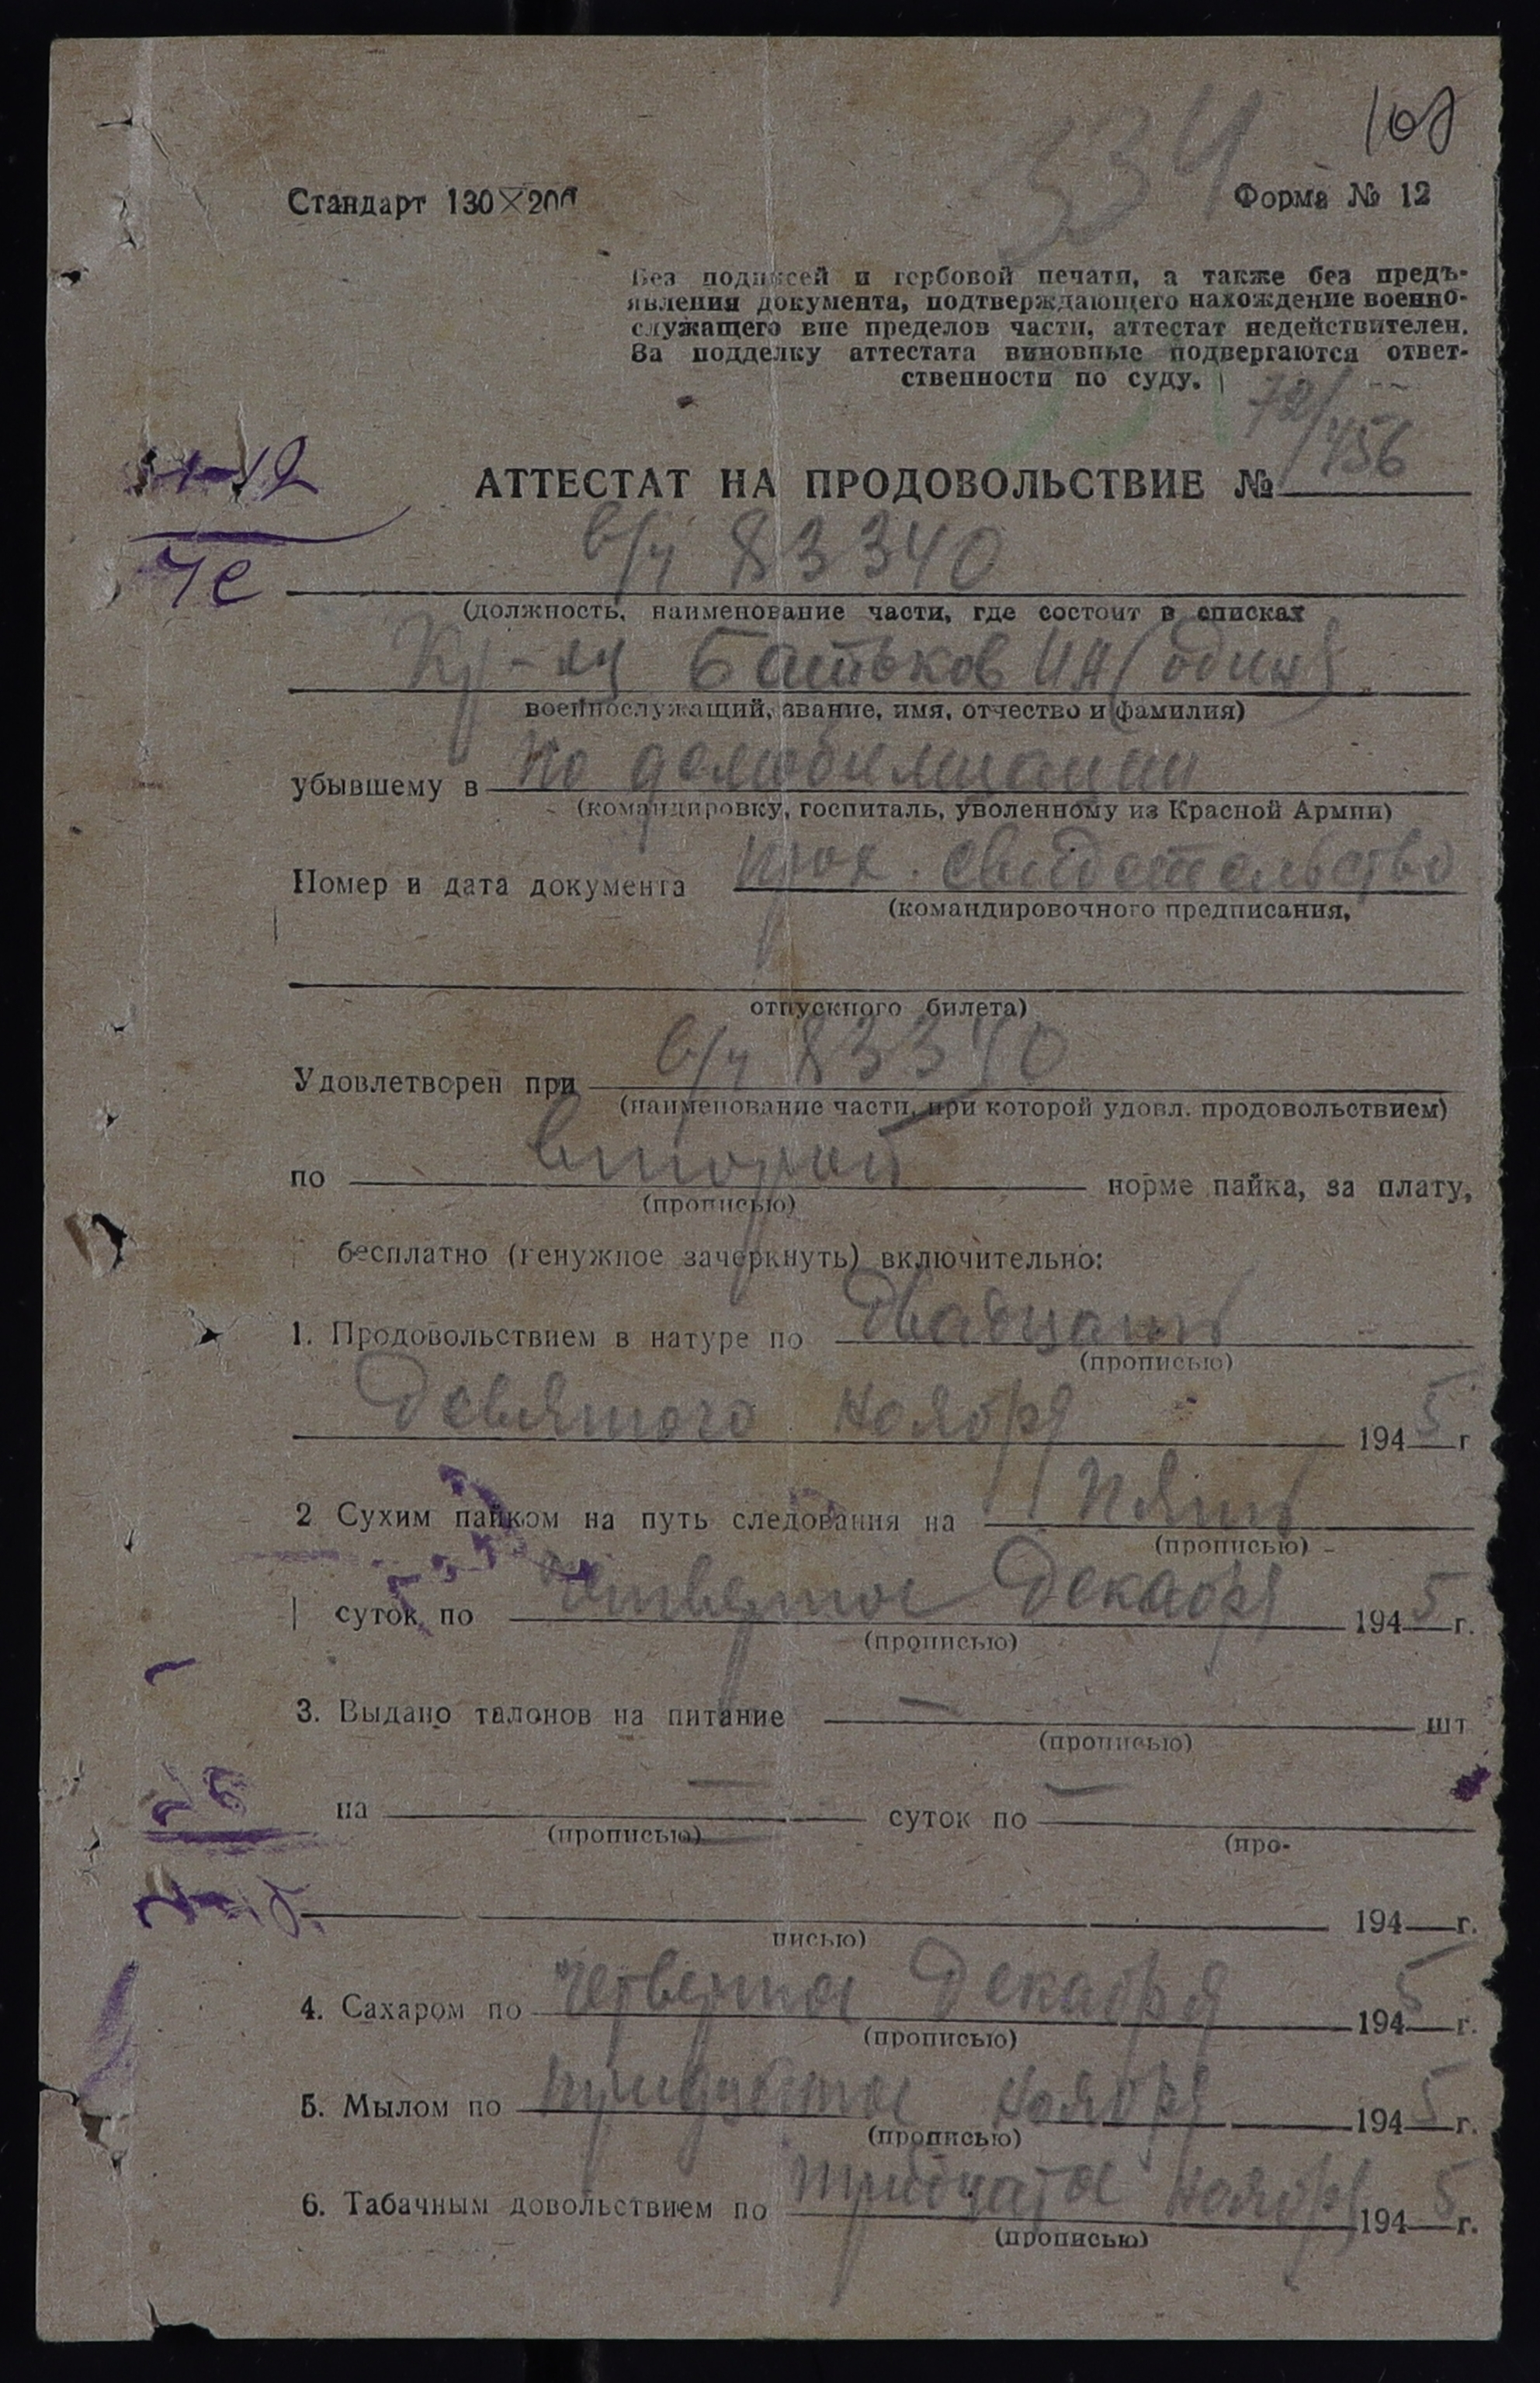 108
534
Стандарт 130×200 Форма № 12
Без подписей и гербовой печати, а также без предъ-
явления документа, подтверждающего нахождение военно-
служащего вне пределов части, аттестат недействителен.
За подделку аттестата виновные подвергаются ответ-
ственности по суду.
72/456
АТТЕСТАТ НА ПРОДОВОЛЬСТВИЕ №
в/ч 83340
(должность, наименование части, где состоит в списках
Кр-ец Батьков ИА (один)
военнослужащий, звание, имя, отчество и фамилия)
убывшему в по демобилизации
(командировку, госпиталь, уволенному из Красной Армии)
Номер и дата документа прох. свидетельство
(командировочного предписания,
отпускного билета)
Удовлетворен при в/ч 83340
(наименование части, при которой удовл. продовольствием)
по второй норме пайка, за плату,
(прописью)
бесплатно (ненужное зачеркнуть) включительно:
1. Продовольствием в натуре по Двадцать
(прописью)
Девятого ноября 1945 г
2 Сухим пайком на путь следования на Пять
(прописью)
суток по Четвертое Декабря 1945 г.
(прописью)
3. Выдано талонов на питание — шт
(прописью)
на — суток по —
(прописью) (про-
194 г.
писью)
4. Сахаром по четвертое Декабря 1945 г.
(прописью)
5. Мылом по тридцатое ноября 1945 г.
(прописью)
6. Табачным довольствием по тридцатое ноября 1945 г.
(прописью)